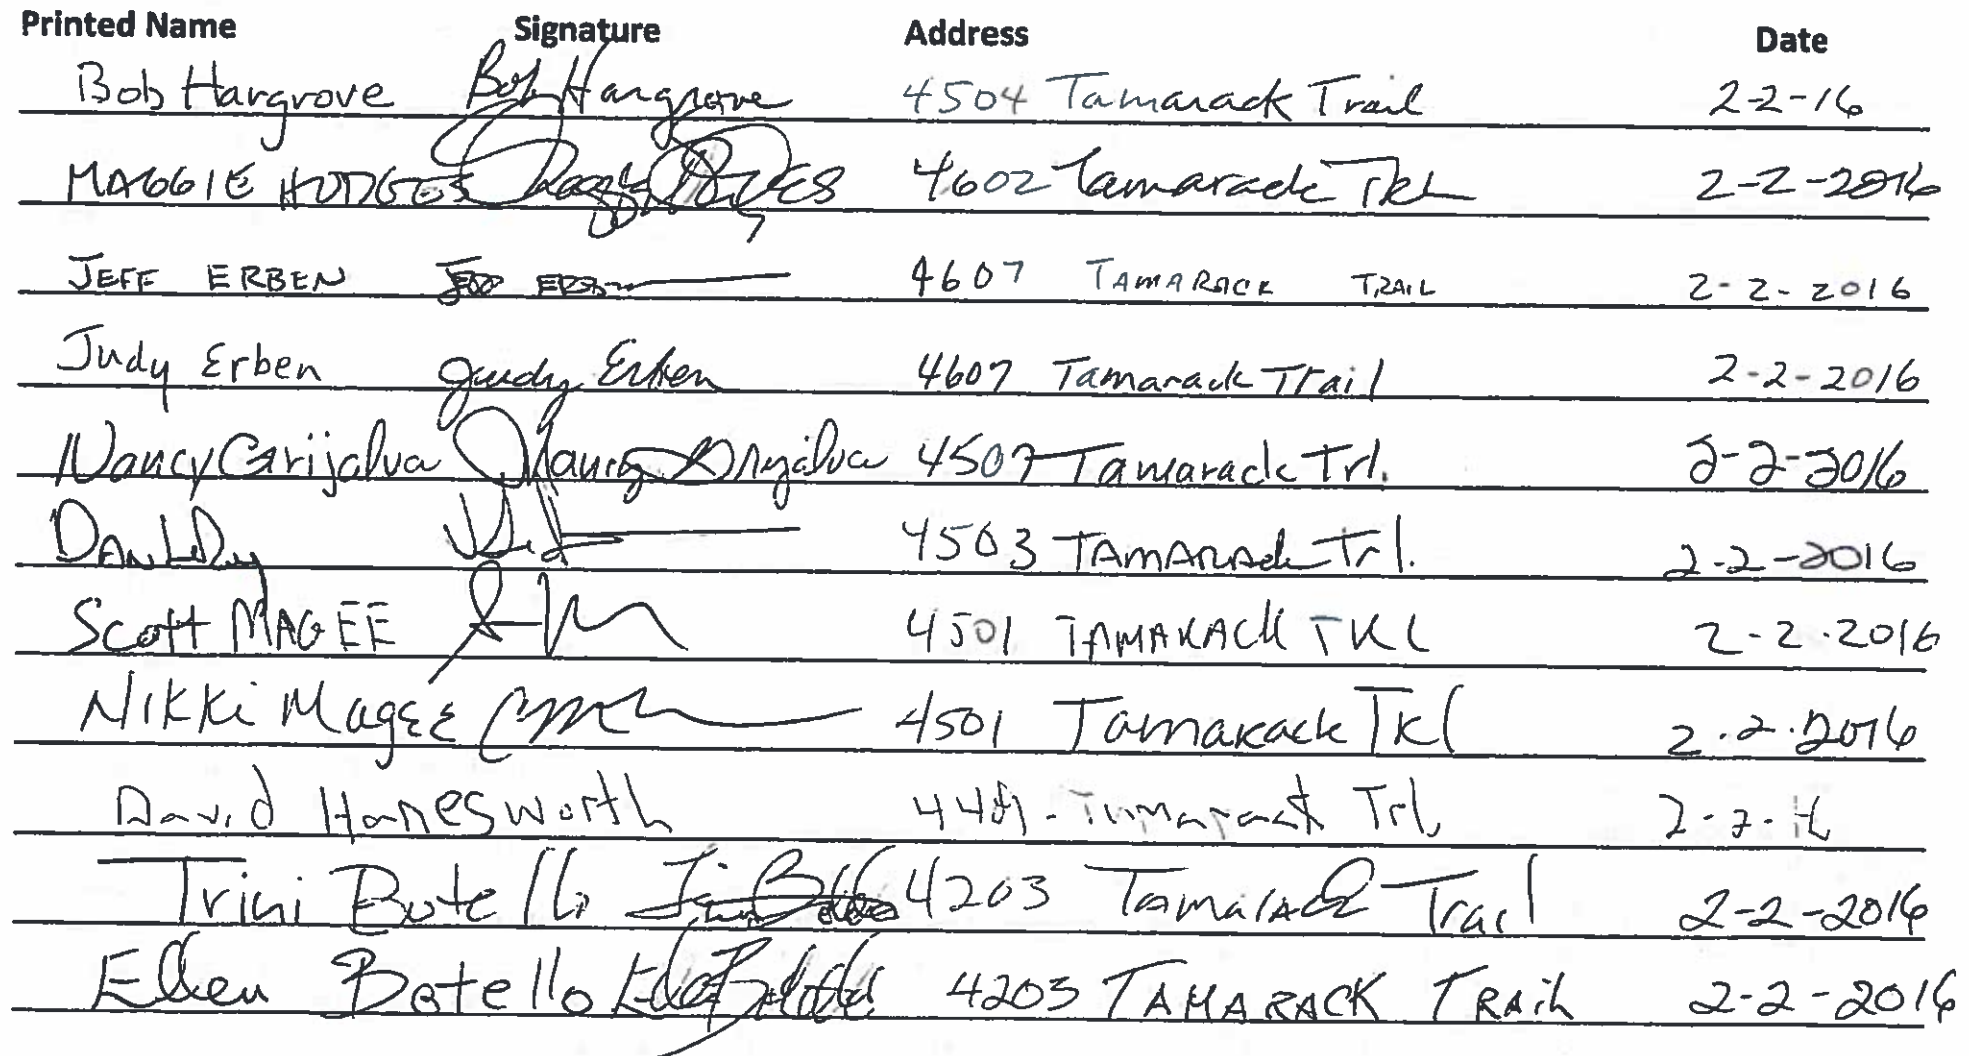 Printed Name Signature Address Date
Bob Hargrove Bob Hargrove 4504 Tamarack Trail 2-2-16
MAGGIE HODGES Maggie Hodges 4602 Tamarack TRL 2-2-2016
JEFF ERBEN 4607 TAMARACK TRAIL 2-2-2016
Judy Erben Judy Erben 4607 Tamarack Trail 2-2-2016
Nancy Grijalva Nancy Grijalva 4507 Tamarack Trl. 2-2-2016
DAN 4503 TAMARACK Trl. 2-2-2016
Scott MAGEE 4501 TAMARACK TRL 2-2-2016
Nikki Magee 4501 Tamarack TRl 2-2-2016
David Hanesworth Tamarack Trl 2-2-16
Trini Botello Trini Botello 4203 Tamarack Trail 2-2-2016
Ellen Botello Ellen Botello 4203 TAMARACK TRAil 2-2-2016